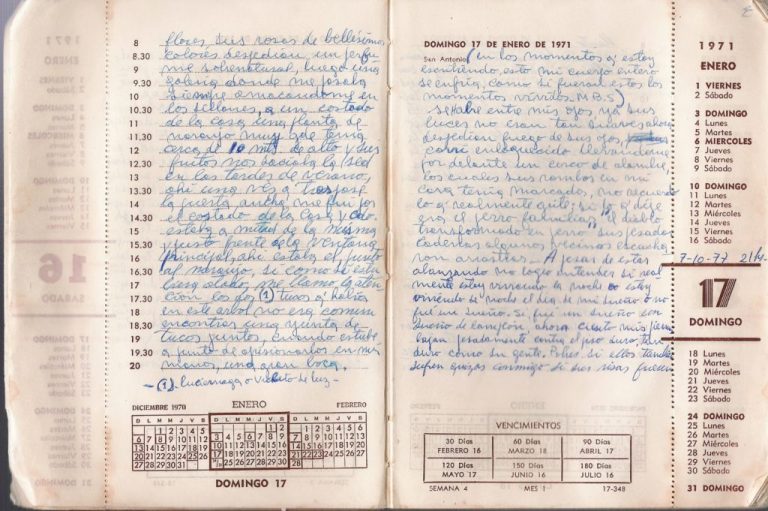 8 flores, sus rosas de bellísimos
8.30 colores despedían un perfu
9 me sobrenatural, luego una
9.30 galería donde me posaba
10 siempre amacandome en
10.30 los sillones, a un costado
11 de la casa una planta de
11.30 naranjo muy que tenía
12 cerca de 10 mts. de alto y sus
12.30 frutos nos saciaba la sed
13 en las tardes de verano,
13.30 ahí una vez a tras
14 la puerta ancha me fui por
14.30 el costado de la casa y cdo.
15 estaba a mitad de la misma
15.30 y justo frente a la ventana
16 principal, ahí estaba el, junto
16.30 al naranjo, si como si estu
17 biera atado, me llamo la aten
17.30 cion los dos (1) tucos q' había
18 en este árbol no era comun
18.30 encontrar una yunta de
19 tucos juntos, cuando estube
19.30 a punto de aprisionarlos en mis
20 manos, una gran boca,
-(1) Luciernaga o Vichito de luz-
DICIEMBRE 1970 ENERO FEBRERO
D L M M J V S
DOMINGO 17
DOMINGO 17 DE ENERO DE 1971
San Antonio (en los momentos q' estoy
escribiendo, esto mi cuerpo entero
se enfria, como si fueran estos los
momentos vividos. M.B.S.)
se habre ente mis ojos ya sus
luces no eran tan suaves, ahora
despedian fuego de sus ojos,
corri enloquecido llevandome
por delante un cerco de alambre,
los cuales sus rombos en mi
cara tenia marcados, no recuerdo
lo q' realmente grité; si lo q' dije
era el perro familiar, "el diablo
transformado en perro" sus pesadas
cadenas algunos vecinos escucha
ron arrastrar - A pesar de estar
alcanzando no logro entender si real
mente estoy viviendo la noche o estoy
viviendo de noche el dia de mi sueño o no
fue un sueño. Si, fue un sueño con
sueño de campeón, ahora cuento mis
bajan pesadamente contra el piso duro, tan
duro como su gente. Pobre si ellos tambien
sufren quizas conmigo si sus risas fueron
7-10-77 21 hs.
VENCIMIENTOS
30 Días FEBRERO 16
60 Días MARZO 18
90 Días ABRIL 17
120 Días MAYO 17
150 Días JUNIO 16
180 Días JULIO 16
SEMANA 4 MES 1 17-348
1971
ENERO
1 VIERNES
2 Sábado
3 DOMINGO
4 Lunes
5 Martes
6 MIERCOLES
7 Jueves
8 Viernes
9 Sábado
10 DOMINGO
11 Lunes
12 Martes
13 Miércoles
14 Jueves
15 Viernes
16 Sábado
17
DOMINGO
18 Lunes
19 Martes
20 Miércoles
21 Jueves
22 Viernes
23 Sábado
24 DOMINGO
25 Lunes
26 Martes
27 Miércoles
28 Jueves
29 Viernes
30 Sábado
31 DOMINGO